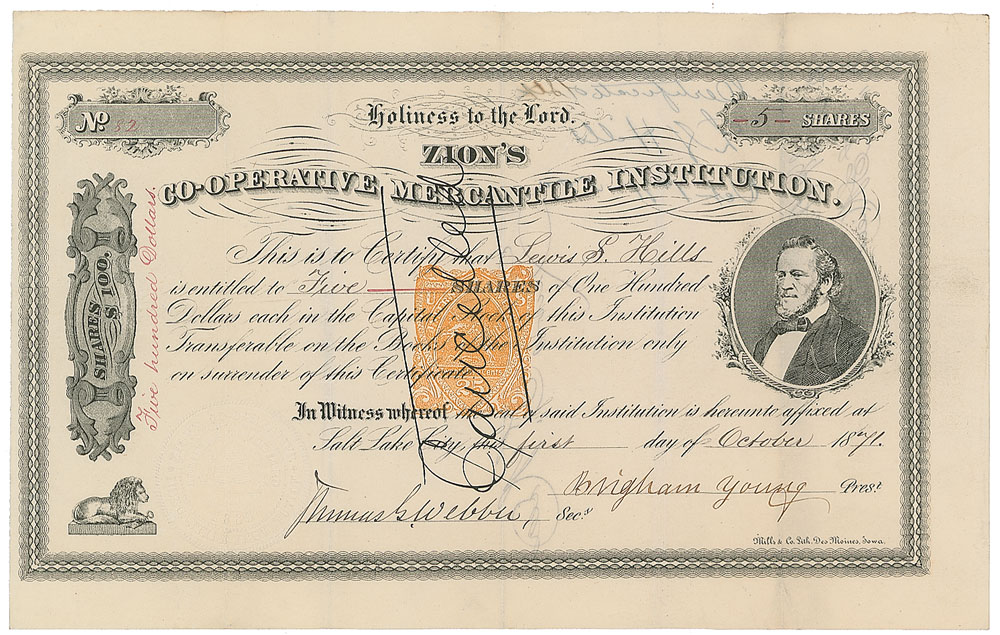 Holiness to the Lord.
No 52
5 SHARES
ZION'S
CO-OPERATIVE MERCANTILE INSTITUTION.
SHARES $100.
Five hundred Dollars.
This is to Certify that Lewis S. Hills
is entitled to Five SHARES of One Hundred
Dollars each in the Capital Stock of this Institution
Transferable on the Books of the Institution only
on surrender of this Certificate
Cents
Cancelled
In Witness whereof the seal of said Institution is hereunto affixed at
Salt Lake City, this first day of October 1871.
Brigham Young Prest
Thomas G. Webber, Secy
Mills & Co. Lith. Des Moines, Iowa.